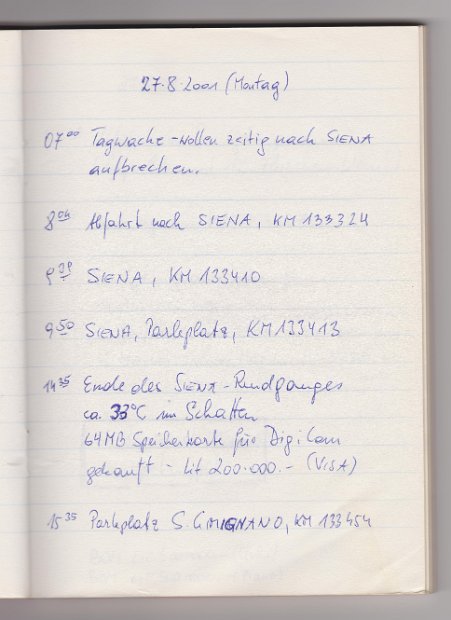 27.8.2001 (Montag)
07⁰⁰ Tagwache - wollen zeitig nach SIENA
aufbrechen.
8⁰⁴ Abfahrt nach SIENA, KM 133324
9³⁹ SIENA, KM 133410
9⁵⁰ SIENA, Parkplatz, KM 133413
14³⁵ Ende des SIENA-Rundganges
ca. 33°C im Schatten
64MB Speicherkarte für DigiCam
gekauft - Lit 200.000.- (VISA)
15³⁵ Parkplatz S. GIMIGNANO, KM 133454